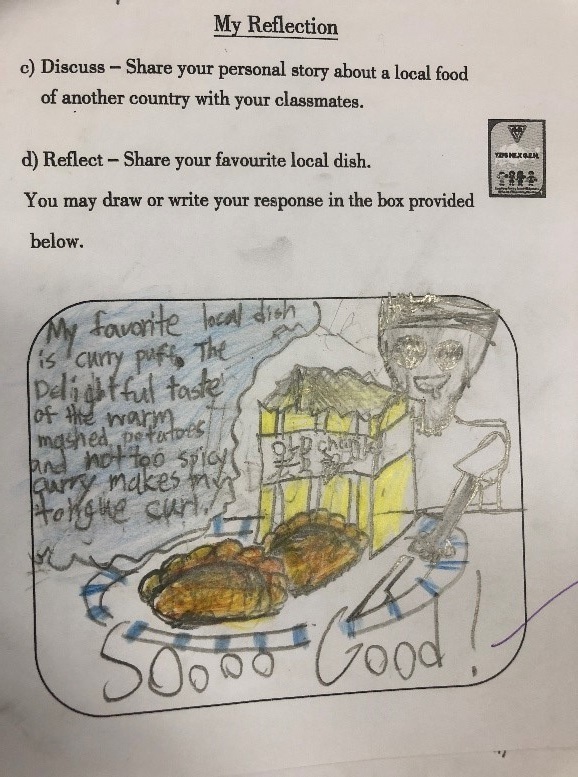 My Reflection
c) Discuss – Share your personal story about a local food
of another country with your classmates.
d) Reflect – Share your favourite local dish.
You may draw or write your response in the box provided
below.
My favorite local dish
is curry puff. The
Delightful taste
of the warm
mashed potatoes
and not too spicy
curry makes my
tongue curl!
OLD chang
Soooo Good!